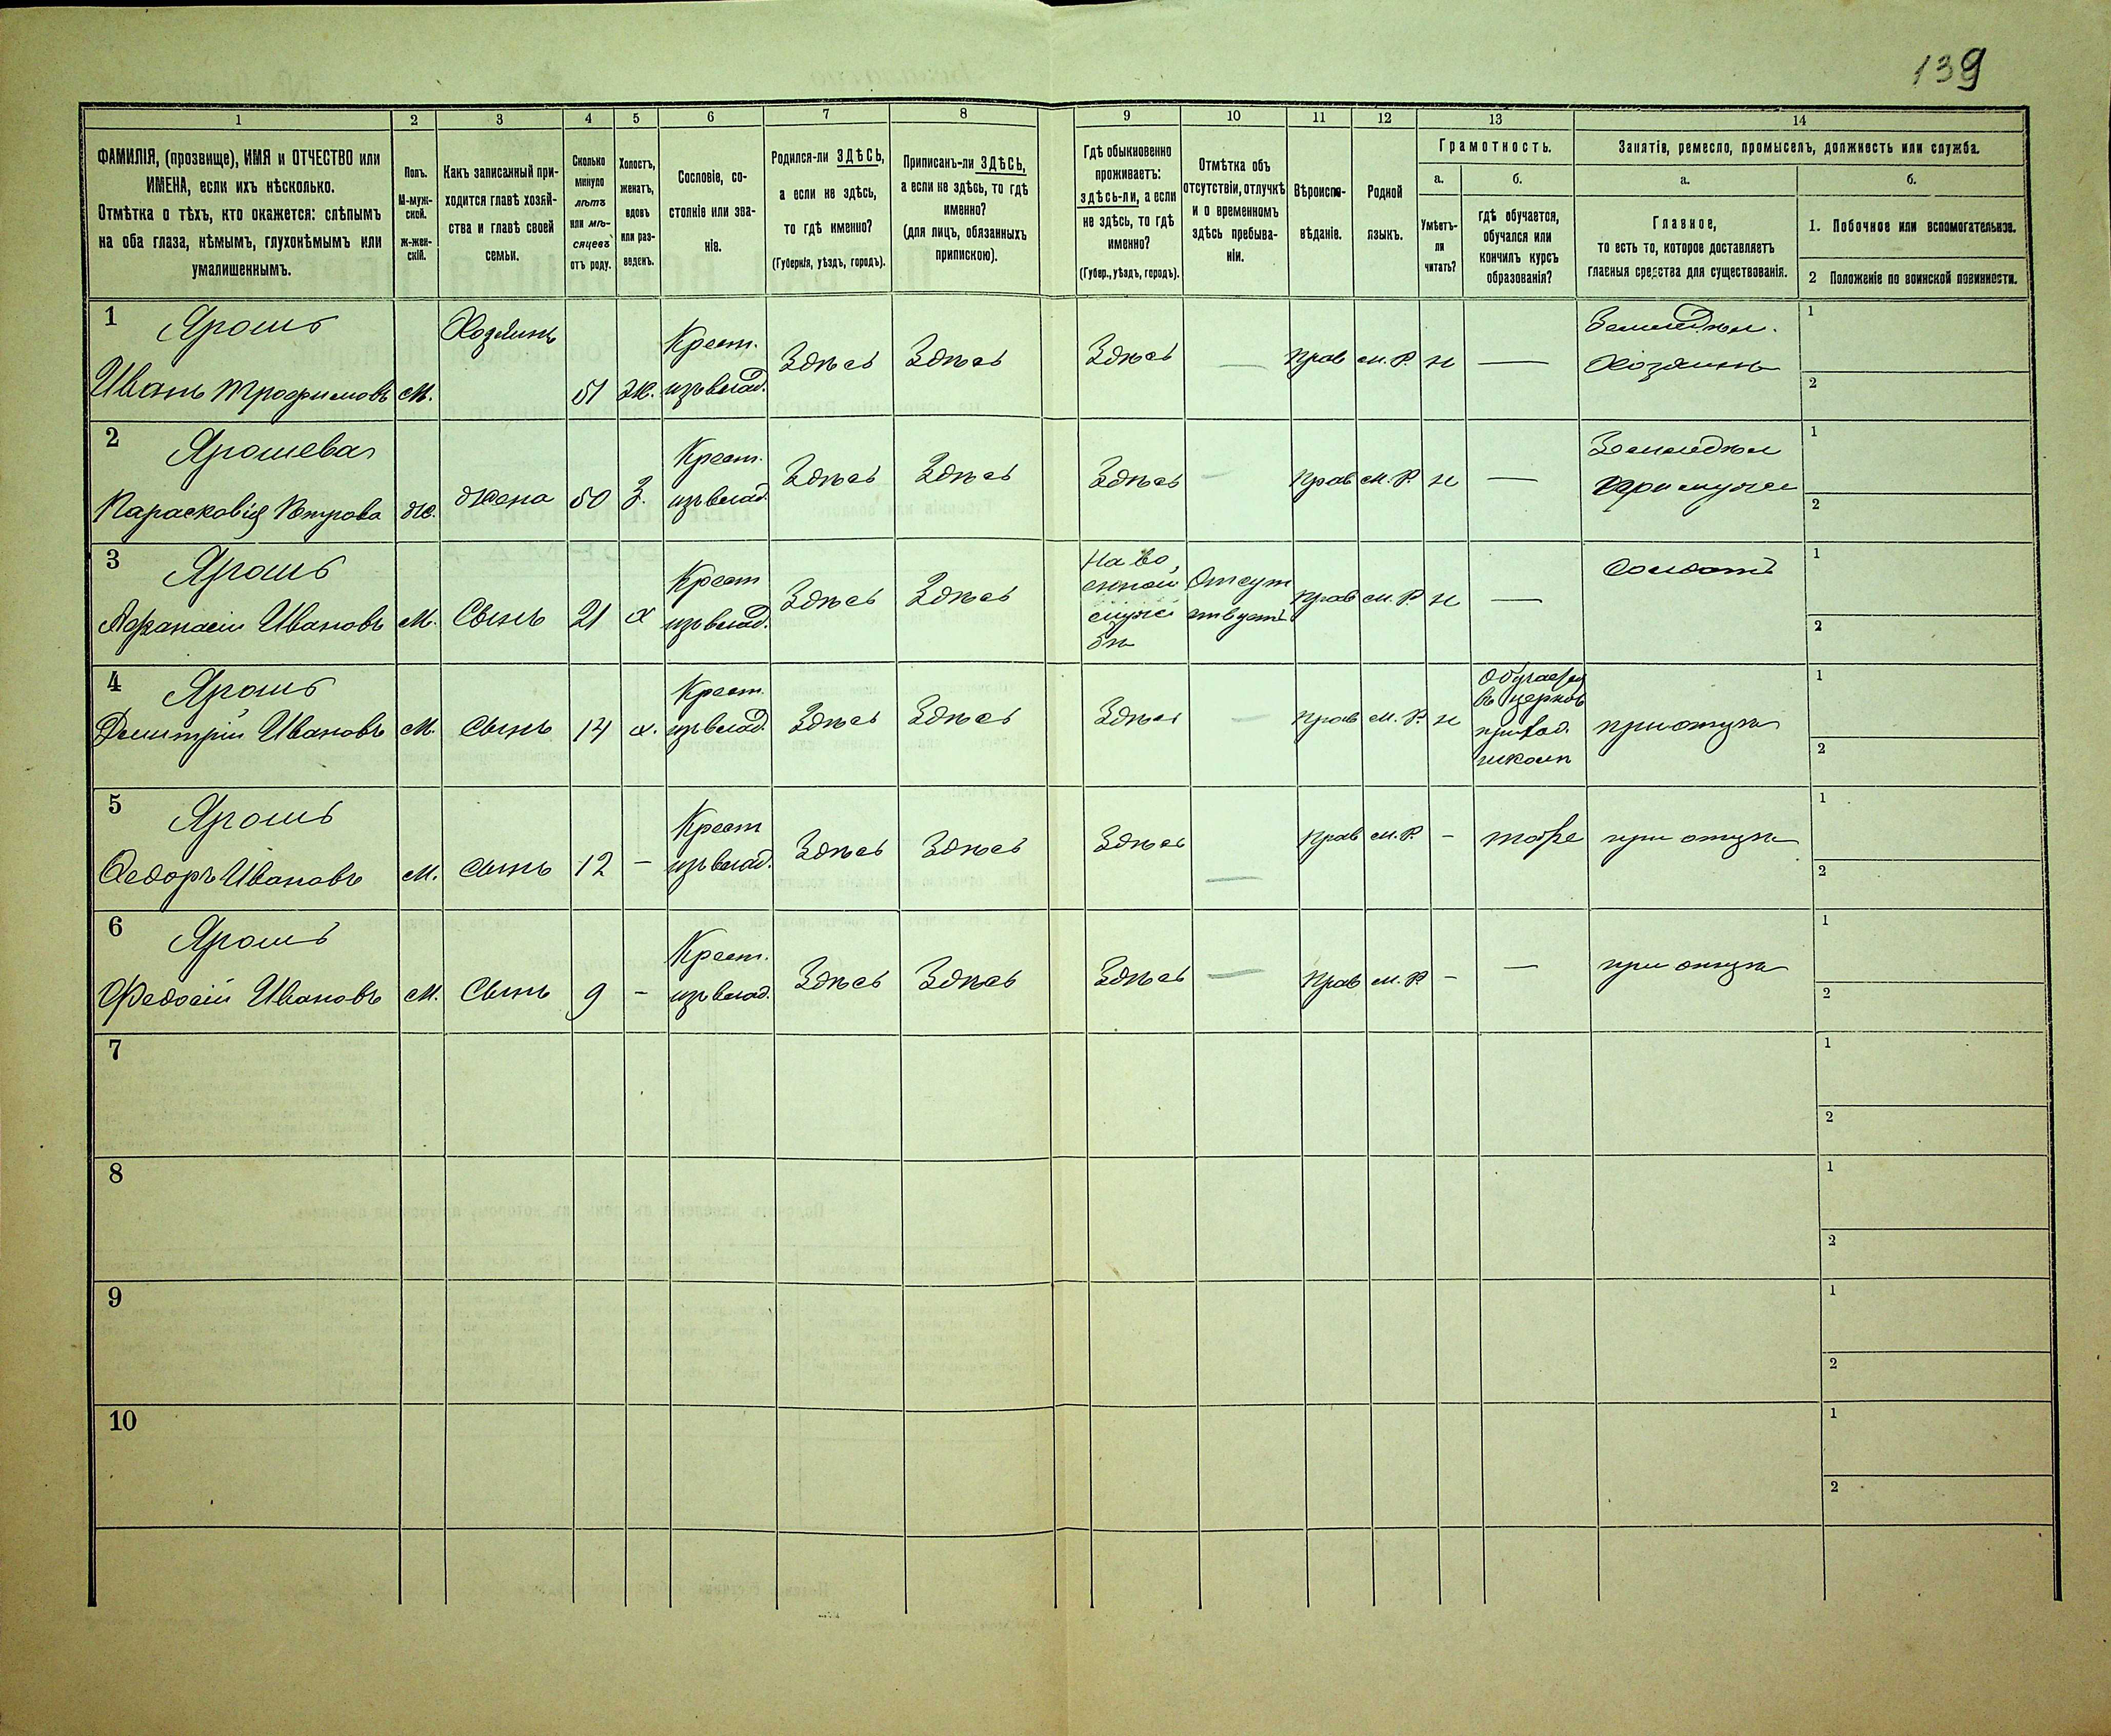 139
1 2 3 4 5 6 7 8 9 10 11 12 13 14
ФАМИЛІЯ, (прозвище), ИМЯ и ОТЧЕСТВО или
ИМЕНА, если ихъ нѣсколько.
Отмѣтка о тѣхъ, кто окажется: слѣпымъ
на оба глаза, нѣмымъ, глухонѣмымъ или
умалишеннымъ.
Полъ.
М-муж-
ской.
ж-жен-
скій.
Какъ записанный при-
ходится главѣ хозяй-
ства и главѣ своей
семьи.
Сколько
минуло
лѣтъ
или мѣ-
сяцевъ
отъ роду.
Холостъ,
женатъ,
вдовъ
или раз-
веденъ.
Сословіе, со-
стояніе или зва-
ніе.
Родился-ли ЗДѢСЬ,
а если не здѣсь,
то гдѣ именно?
(Губернія, уѣздъ, городъ).
Приписанъ-ли ЗДѢСЬ,
а если не здѣсь, то гдѣ
именно?
(для лицъ, обязанныхъ
припискою).
Гдѣ обыкновенно
проживаетъ:
здѣсь-ли, а если
не здѣсь, то гдѣ
именно?
(Губер., уѣздъ, городъ).
Отмѣтка объ
отсутствіи, отлучкѣ
и о временномъ
здѣсь пребыва-
ніи.
Вѣроиспо-
вѣданіе.
Родной
языкъ.
Грамотность.
а.
Умѣетъ-
ли
читать?
б.
гдѣ обучается,
обучался или
кончилъ курсъ
образованія?
Занятіе, ремесло, промыселъ, должность или служба.
а.
Главное,
то есть то, которое доставляетъ
главныя средства для существованія.
б.
1. Побочное или вспомогательное.
2 Положеніе по воинской повинности.
1 Ярошъ
Иванъ Трофимовъ
М.
Хозяинъ
51
Ж.
Крест.
изъ влад.
Здѣсь
Здѣсь
Здѣсь
—
Прав
М. Р.
н
—
Земледѣл.
Хозяинъ
1
2
2 Ярошева
Парасковія Петрова
Ж.
Жена
50
З.
Крест.
изъ влад.
Здѣсь
Здѣсь
Здѣсь
—
Прав
М. Р.
н
—
Земледѣл
При мужѣ
1
2
3 Ярошъ
Афанасій Ивановъ
М.
Сынъ
21
х
Крест
изъ влад.
Здѣсь
Здѣсь
На во
енной
служ
бѣ
Отсут
ствуетъ
Прав
М. Р.
н
—
Солдатъ
1
2
4 Ярошъ
Дмитрій Ивановъ
М.
Сынъ
14
х.
Крест.
изъ влад.
Здѣсь
Здѣсь
Здѣсь
—
Прав
М. Р.
н
Обучается
въ церков
приход.
школѣ
при отцѣ
1
2
5 Ярошъ
Федоръ Ивановъ
М.
Сынъ
12
—
Крест
изъ влад.
Здѣсь
Здѣсь
Здѣсь
—
Прав
М. Р.
—
тоже
при отцѣ
1
2
6 Ярошъ
Федосій Ивановъ
М.
Сынъ
9
—
Крест.
изъ влад.
Здѣсь
Здѣсь
Здѣсь
—
Прав
М. Р.
—
—
при отцѣ
1
2
7
1
2
8
1
2
9
1
2
10
1
2